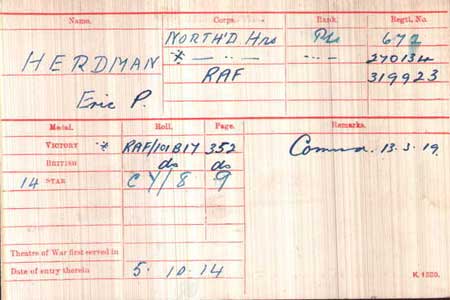 Name. Corps. Rank. Regtl. No.
HERDMAN NORTH'D Hrs Pte 672
* — " — — " — 270134
RAF 319923
Eric P.
Medal. Roll. Page. Remarks.
VICTORY * RAF/101B17 352 Commn. 13.3.19.
BRITISH do do
14 STAR CY/8 9
Theatre of War first served in
Date of entry therein 5.10.14
K. 1380.